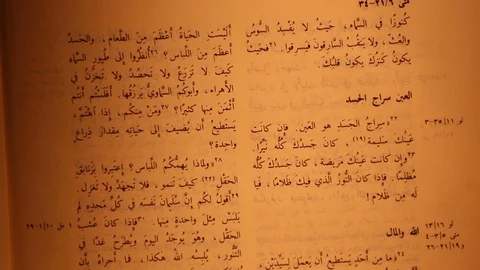 متى ٢١/٦-٣٤
كُنوزًا في السَّماء، حَيثُ لا يُفْسِدُ السُّوسُ
والعُثّ، ولا يَنقُبُ السَّارِقونَ فيَسرِقوا. ٢١فحَيثُ
يكونُ كَنزُكَ يكونُ قلبُكَ.
العين سراج الجسد
٢٢سِراجُ الجَسَدِ هو العَين. فإن كانَت
عَينُكَ سَليمة(١٩)، كانَ جَسَدُكَ كُلُّه نَيِّرًا.
٢٣وإن كانَت عَينُكَ مَريضة، كانَ جَسَدُكَ كُلُّه
مُظلِمًا. فإذا كانَ النُّورُ الَّذي فيكَ ظَلامًا، فَيا
لَه مِن ظَلام!
الله والمال
٢٤ما مِن أَحَدٍ يَستَطيعُ أَن يَعمَلَ لِسَيِّدَين،
لو ٣٣/١١-٣٥
لو ١٣/١٦
أَلَيْسَتِ الحَياةُ أَعظَمَ مِنَ الطَّعام، والجَسَدُ
أَعظَمَ مِنَ اللِّباس؟ ٢٦أُنظُروا إِلى طُيورِ السَّماءِ
كَيفَ لا تَزرَعُ ولا تَحصُدُ ولا تَخزُنُ في
الأَهراء، وأَبوكُمُ السَّماويُّ يَرزُقُها. أَفَلَستُم أَنتُم
أَثمَنَ مِنها كثيرًا؟ ٢٧ومَن مِنكُم، إِذا اهتَمَّ،
يَستَطيعُ أَن يُضيفَ إِلى حَياتِه مِقدارَ ذِراعٍ
واحِدة؟
٢٨ولِماذا يُهِمُّكُمُ اللِّباس؟ إِعتَبِروا بِزَنابِقِ
الحَقْلِ كَيفَ تَنمو، فلا تَجهَدُ ولا تَغزِل.
٢٩أَقولُ لَكُم إِنَّ سُلَيمانَ نَفسَه في كُلِّ مَجدِه لم
يَلبَسْ مِثلَ واحِدةٍ مِنها. ٣٠فإِذا كانَ عُشبُ
الحَقْل، وهوَ يُوجَدُ اليومَ ويُطرَحُ غدًا في
التَّنُّور، يُلبِسُه اللهُ هكذا، فما أَحراهُ بأَن